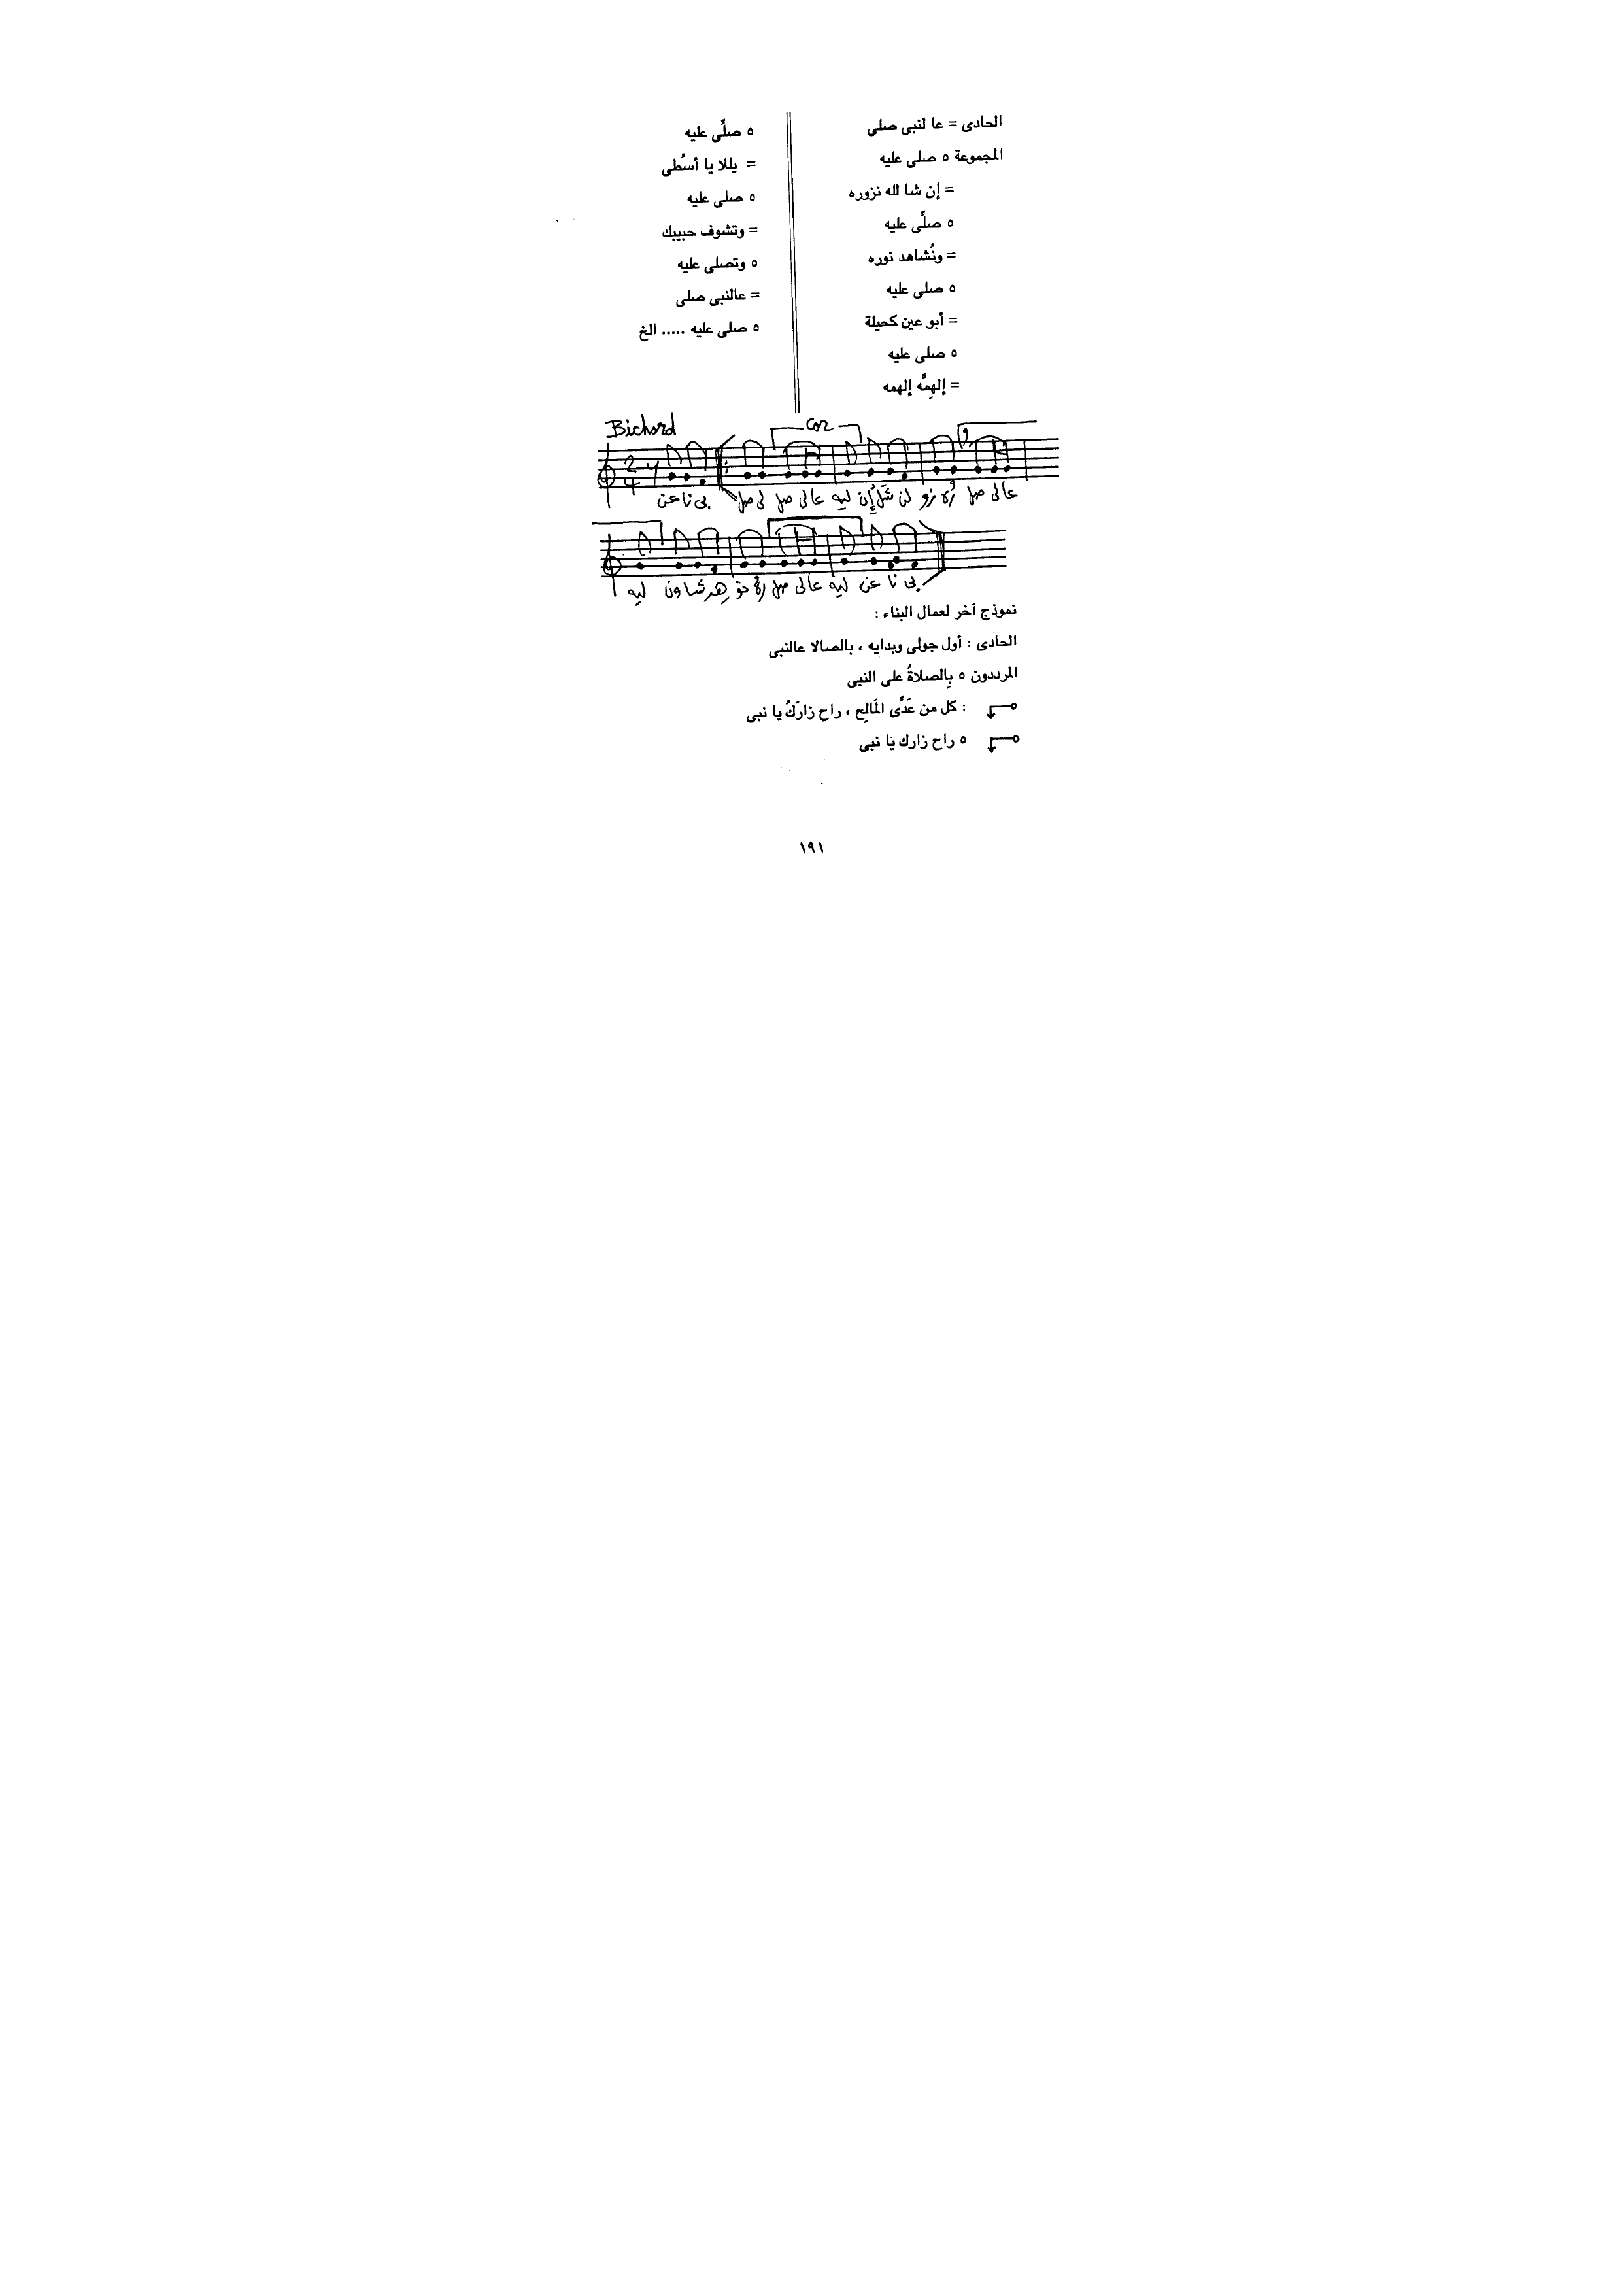 الحادى = عا لنبى صلى
المجموعة ٥ صلى عليه
= إن شا لله نزوره
٥ صلِّى عليه
= ونُشاهد نوره
٥ صلى عليه
= أبو عين كحيلة
٥ صلى عليه
= إلهِمَّه إلهمه
٥ صلِّى عليه
= يللا يا أسُطى
٥ صلى عليه
= وتشوف حبيبك
٥ وتصلى عليه
= عالنبى صلى
٥ صلى عليه ..... الخ
Bichard
Cor
2
4
عن نا بى صل لى صل لى عا ليه إن شَل لن زو رُه صل لى عا
ليه ون شا هِد نو رُه صل لى عا ليه عن نا بى
نموذج آخر لعمال البناء :
الحادى : أول جولى وبدايه ، بالصالا عالنبى
المرددون ٥ بِالصلاةُ على النبى
: كل من عَدَّى المَالِح ، راح زارَكُ يا نبى
٥ راح زارك يا نبى
١٩١